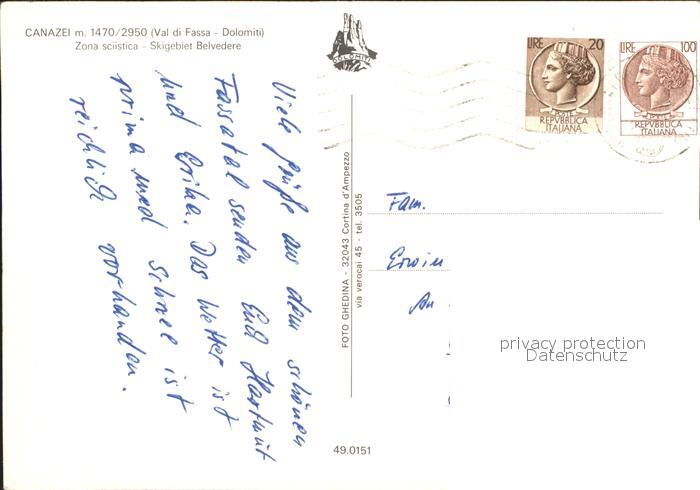 CANAZEI m. 1470/2950 (Val di Fassa - Dolomiti)
Zona sciistica - Skigebiet Belvedere
DOLOMITI
LIRE 20
POSTE
REPVBBLICA
ITALIANA
LIRE 100
POSTE
REPVBBLICA
ITALIANA
Viele Grüße aus dem schönen
Fassatal senden Euch Hartmut
und Erika. Das Wetter ist
prima und Schnee ist
reichlich vorhanden.
FOTO GHEDINA - 32043 Cortina d'Ampezzo
via verocai 45 - tel. 3505
Fam.
Erwin
An
privacy protection
Datenschutz
49.0151